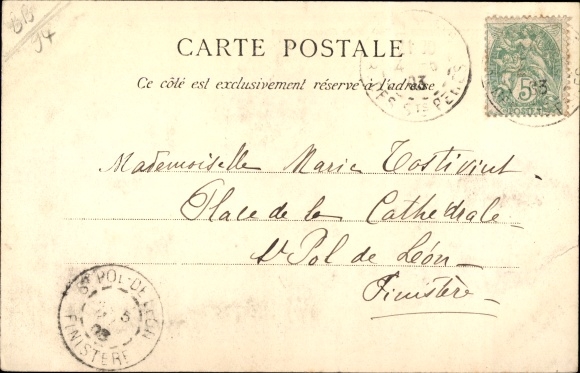 BB
94
CARTE POSTALE
Ce côté est exclusivement réservé à l'adresse
5
03
Mademoiselle Marie Tostivint
Place de la Cathédrale
St Pol de Léon
Finistère
ST POL-DE-LÉON
03
FINISTERE